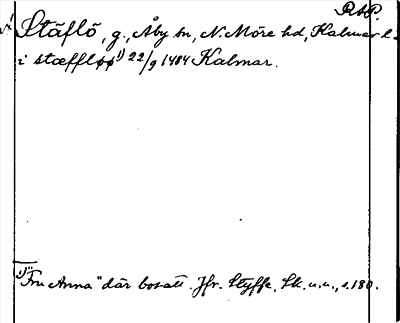 RAP.
Stäflö, g., Åby sn, N. Möre hd, Kalmar l.
i stæffløø ¹⁾ 22/9 1484 Kalmar.
¹⁾ "Fru Anna" där bosatt. Jfr. Styffe, Sk. u. u., s. 180.